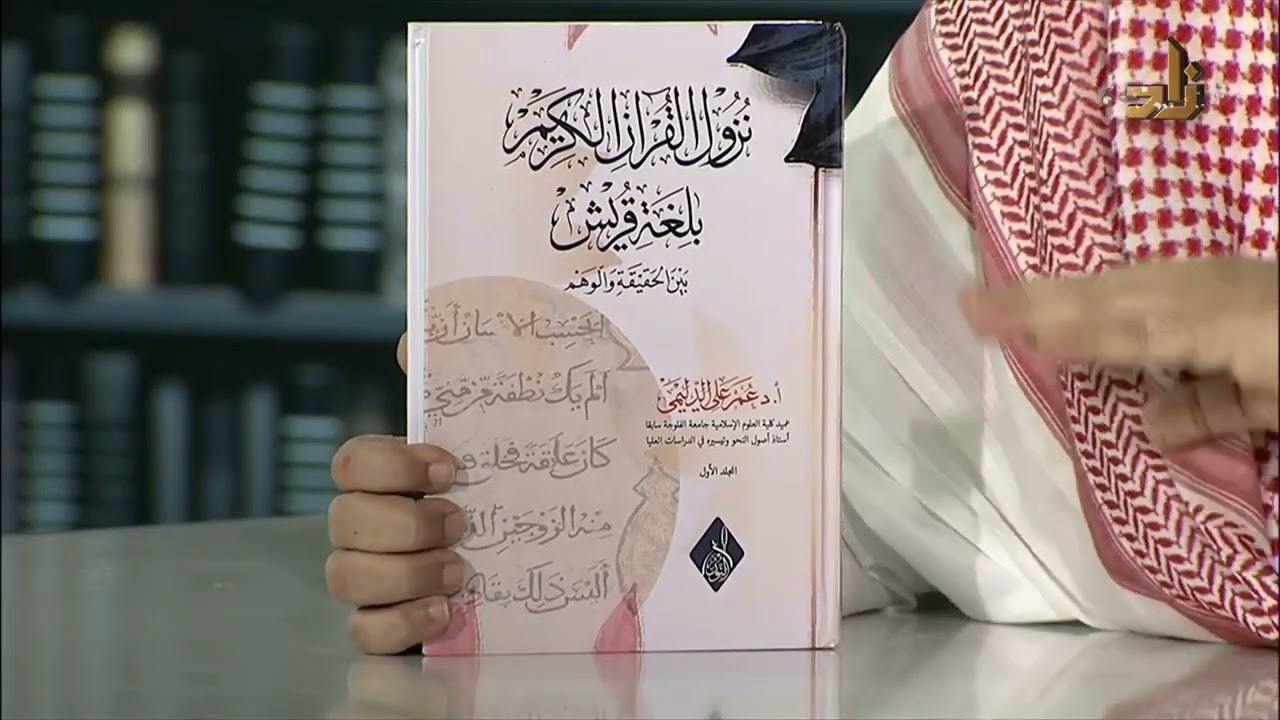 زاد
نزول القرآن الكريم
بلغة قريش
بين الحقيقة والوهم
أ.د عمر علي الدليمي
عميد كلية العلوم الإسلامية جامعة الفلوجة سابقا
أستاذ أصول النحو وتيسيره في الدراسات العليا
المجلد الأول
أيحسب الإنسان أن
ألم يك نطفة من مني
كان علقة فخلق
منه الزوجين الذ
أليس ذلك بقا